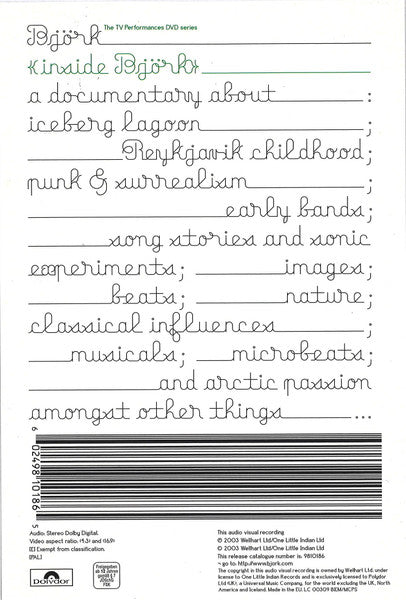 Björk The TV Performances DVD series
{inside Björk}
a documentary about :
iceberg lagoon ;
Reykjavik childhood;
punk & surrealism ;
early bands;
song stories and sonic
experiments; images;
beats; nature;
classical influences ;
musicals; microbeats;
and arctic passion
amongst other things ...
6 02498 10186 5
Audio: Stereo Dolby Digital.
Video aspect ratio: (4:3) and (16:9)
[E] Exempt from classification.
(PAL)
polydor
Freigegeben
ab 12 Jahren
gemäß § 7
JÖSchG
FSK
This audio visual recording
℗ 2003 Wellhart Ltd/One Little Indian Ltd
© 2003 Wellhart Ltd/One Little Indian Ltd
This release catalogue number is: 9810186
-> go to: http://www.bjork.com
The copyright in this audio visual recording is owned by Wellhart Ltd. under
license to One Little Indian Records and is exclusively licensed to Polydor
Ltd (UK), a Universal Music Company, for the world excluding the UK, North
America and Iceland. Made in the E.U. LC 00309 BIEM/MCPS